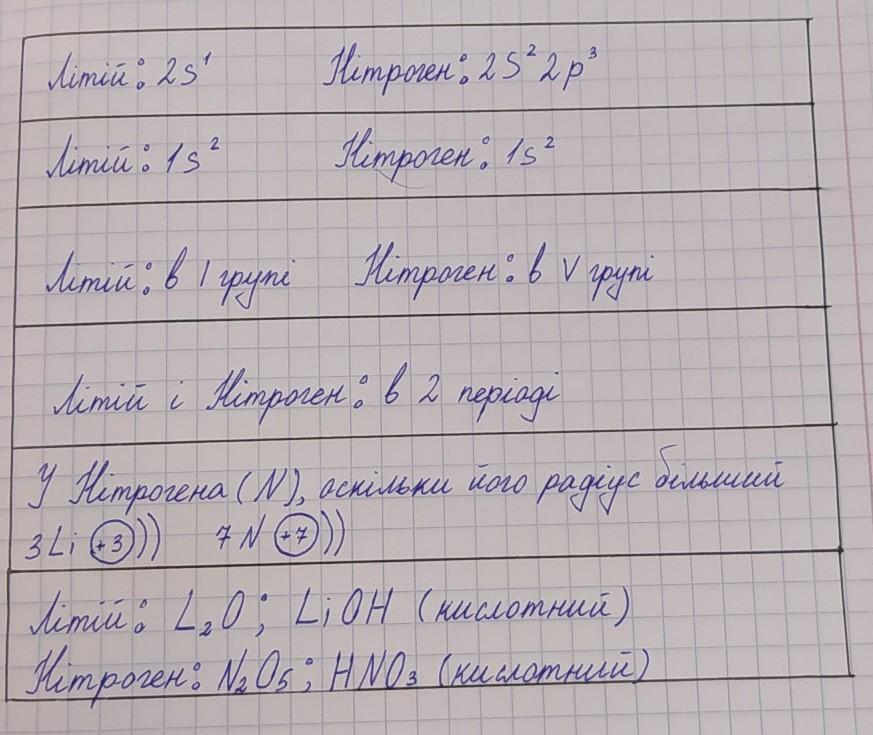 Літій: 2s¹ Нітроген: 2s²2p³
Літій: 1s² Нітроген: 1s²
Літій: в I групі Нітроген: в V групі
Літій і Нітроген: в 2 періоді
У Нітрогена (N), оскільки його радіус більший
3Li (+3))) 7N (+7)))
Літій: L₂O; LiOH (кислотний)
Нітроген: N₂O₅; HNO₃ (кислотний)